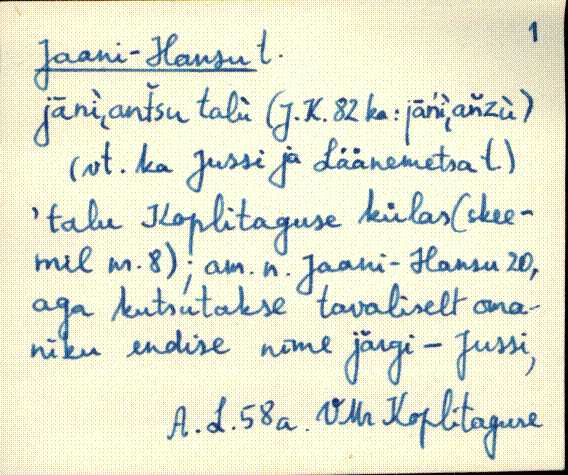 1
Jaani-Hansu t.
jāni̮ antšu talù (J.K. 82 ka: jāni̮ ańzù)
(vt. ka Jussi ja Läänemetsa t.)
'talu Koplitaguse külas (skee-
mil nr. 8); am. n. Jaani-Hansu 20,
aga kutsutakse tavaliselt oma-
niku endise nime järgi – Jussi,
A. L. 58a. VMr Koplitaguse